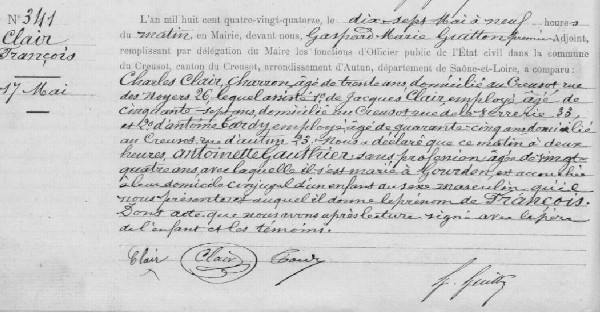 N° 341
Clair
François
17 Mai
L'an mil huit cent quatre-vingt-quatorze, le dix-sept Mai à neuf heures
du matin, en Mairie, devant nous, Gaspard Marie Guitton premier Adjoint,
remplissant par délégation du Maire les fonctions d'Officier public de l'État civil dans la commune
du Creusot, canton du Creusot, arrondissement d'Autun, département de Saône-et-Loire, a comparu :
Charles Clair, Charron, âgé de trente ans, domicilié au Creusot, rue
des Noyers 26, lequel assisté 1° de Jacques Clair, employé, âgé de
cinquante-sept ans, domicilié au Creusot rue de la Verrerie 33,
et 2° d'Antoine employé âgé de quarante-cinq ans, domicilié
au Creusot, rue d'Autun 73, Nous a déclaré que ce matin à deux
heures, Antoinette Gauthier, sans profession, âgée de vingt-
quatre ans, avec laquelle il s'est marié à Gourdon, est accouchée
à leur domicile conjugal d'un enfant du sexe masculin qu'il
nous présente et auquel il donne le prénom de François.
Dont acte que nous avons après lecture signé avec le père
de l'enfant et les témoins.
Clair Clair